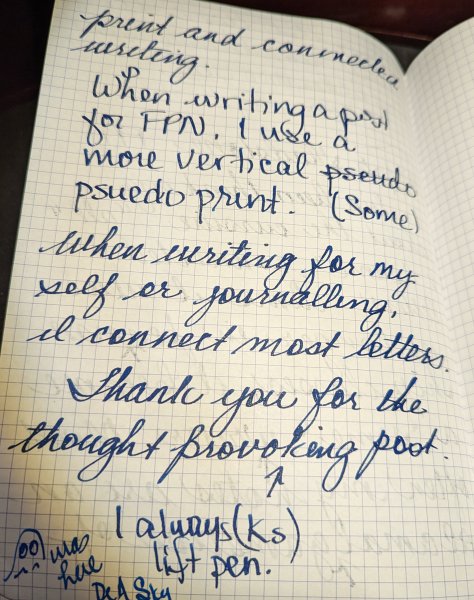 print and connected
writing.
When writing a post
for FPN, I use a
more vertical pseudo
psuedo print. (Some)
When writing for my
self or journalling,
I connect most letters.
Thank you for the
thought provoking post.
↑
I always (Ks)
lift pen.
was
here